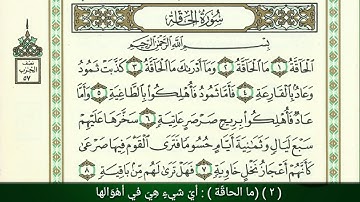 سُورَةُ الحَاقَّةِ
بِسْمِ اللَّهِ الرَّحْمَٰنِ الرَّحِيمِ
الْحَاقَّةُ ١ مَا الْحَاقَّةُ ٢ وَمَا أَدْرَاكَ مَا الْحَاقَّةُ ٣ كَذَّبَتْ ثَمُودُ
وَعَادٌ بِالْقَارِعَةِ ٤ فَأَمَّا ثَمُودُ فَأُهْلِكُوا بِالطَّاغِيَةِ ٥ وَأَمَّا
عَادٌ فَأُهْلِكُوا بِرِيحٍ صَرْصَرٍ عَاتِيَةٍ ٦ سَخَّرَهَا عَلَيْهِمْ
سَبْعَ لَيَالٍ وَثَمَانِيَةَ أَيَّامٍ حُسُومًا فَتَرَى الْقَوْمَ فِيهَا صَرْعَىٰ
كَأَنَّهُمْ أَعْجَازُ نَخْلٍ خَاوِيَةٍ ٧ فَهَلْ تَرَىٰ لَهُم مِّن بَاقِيَةٍ ٨
نصف
الحزب
٥٧
(٢) (ما الحاقّة) : أيّ شيءٍ هِيَ في أهوَالها